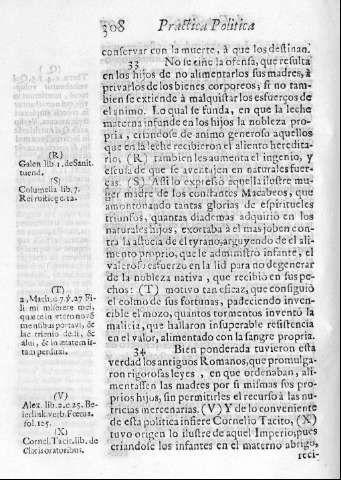 308 Practica Politica
conservar con la muerte, à que los destinan.
33 No se ciñe la ofensa, que resulta
en los hijos de no alimentarlos sus madres, à
privarlos de los bienes corporeos; si no tam
bien se extiende à malquistar los esfuerços de
el animo. Lo qual se funda, en que la leche
materna infunde en los hijos la nobleza pro-
pria, criandose de animo generoso aquellos
que en la leche recibieron el aliento heredita-
rio. (R) tambien les aumenta el ingenio, y
es causa de que se aventajen en naturales fuer-
ças. (S) Assi lo expressò aquella ilustre mu-
ger madre de los constantes Macabeos, que
amontonando tantas glorias de espirituales
triunfos, quantas diademas adquiriò en los
naturales hijos, exortaba à el mas joben con-
tra la astucia de el tyrano, arguyendo de el ali-
mento proprio, que le administrò infante, el
valeroso esfuerzo en la lid para no degenerar
de la nobleza nativa, que recibiò en sus pe-
chos: (T) motivo tan eficaz, que consiguiò
el colmo de sus fortunas, padeciendo inven-
cible el mozo, quantos tormentos inventò la
malicia, que hallaron insuperable resistencia
en el valor, alimentado con la sangre propria.
34 Bien ponderada tuvieron esta
verdad los antiguos Romanos, que promulga-
ron rigorosas leyes, en que ordenaban, ali-
mentassen las madres por si mismas sus pro-
prios hijos, sin permitirles el recurso à las nu-
tricias mercenarias. (V) Y de lo conveniente
de esta politica infiere Cornelio Tacito, (X)
tuvo origen lo ilustre de aquel Imperio, pues
criandose los infantes en el materno abrigo,
reci-
(R)
Galen lib. 1. de Sanit.
tuend.
(S)
Columella lib. 7.
Rei rusticę c. 12.
(T)
2. Mach. c. 7. ℣. 27 Fi-
li mi miserere mei,
quæ te in utero novẽ
mensibus portavi, &
lac triennio dedi, &
alui, & in ætatem is-
tam perduxi.
(V)
Alex. lib. 2. c. 25. Be-
ierlink verb. Fœtus.
fol. 125.
(X)
Cornel. Tacit. lib. de
Claris oratoribus.